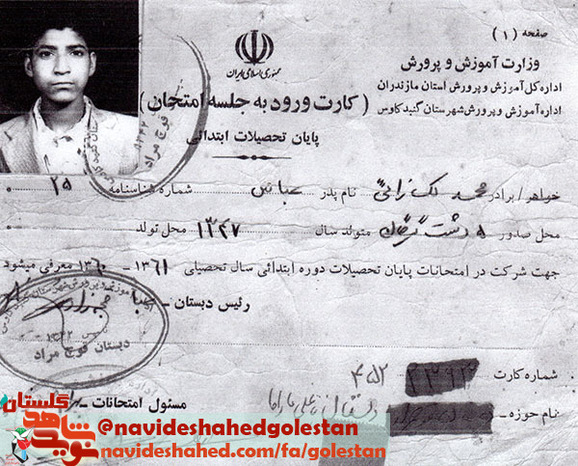 صفحه (۱)
جمهوری اسلامی ایران
وزارت آموزش و پرورش
اداره کل آموزش و پرورش استان مازندران
اداره آموزش و پرورش شهرستان گنبد کاوس
(کارت ورود به جلسه امتحان)
پایان تحصیلات ابتدائی
خواهر / برادر محمد نام پدر عباس شماره شناسنامه ۲۵
محل صدور ۵ دشت گرگان متولد سال ۱۳۴۷ محل تولد
جهت شرکت در امتحانات پایان تحصیلات دوره ابتدائی سال تحصیلی ۱۳۶۱ - ۱۳۶۰ معرفی میشود
رئیس دبستان -
دبستان قوچ مراد
شماره کارت ۴۵۲
نام حوزه - دبستان
مسئول امتحانات -
نوید شاهد گلستان
@navideshahedgolestan
navideshahed.com/fa/golestan